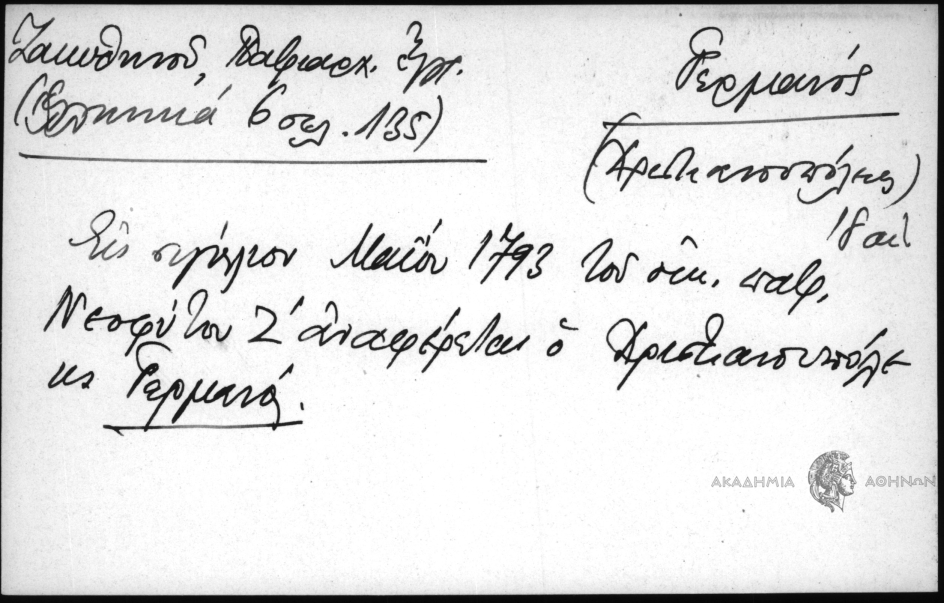 Ζακυθηνοῦ, Πατριαρχ. Ἔγγρ.
(Ἑλληνικά 6 σελ. 135)
Γερμανός
(Χριστιανουπόλεως)
18 αἰ.
Εἰς σιγίλλιον Μαΐου 1793 τοῦ οἰκ. πατρ.
Νεοφύτου Ζ' ἀναφέρεται ὁ Χριστιανουπόλε
ως Γερμανός.
ΑΚΑΔΗΜΙΑ ΑΘΗΝΩΝ